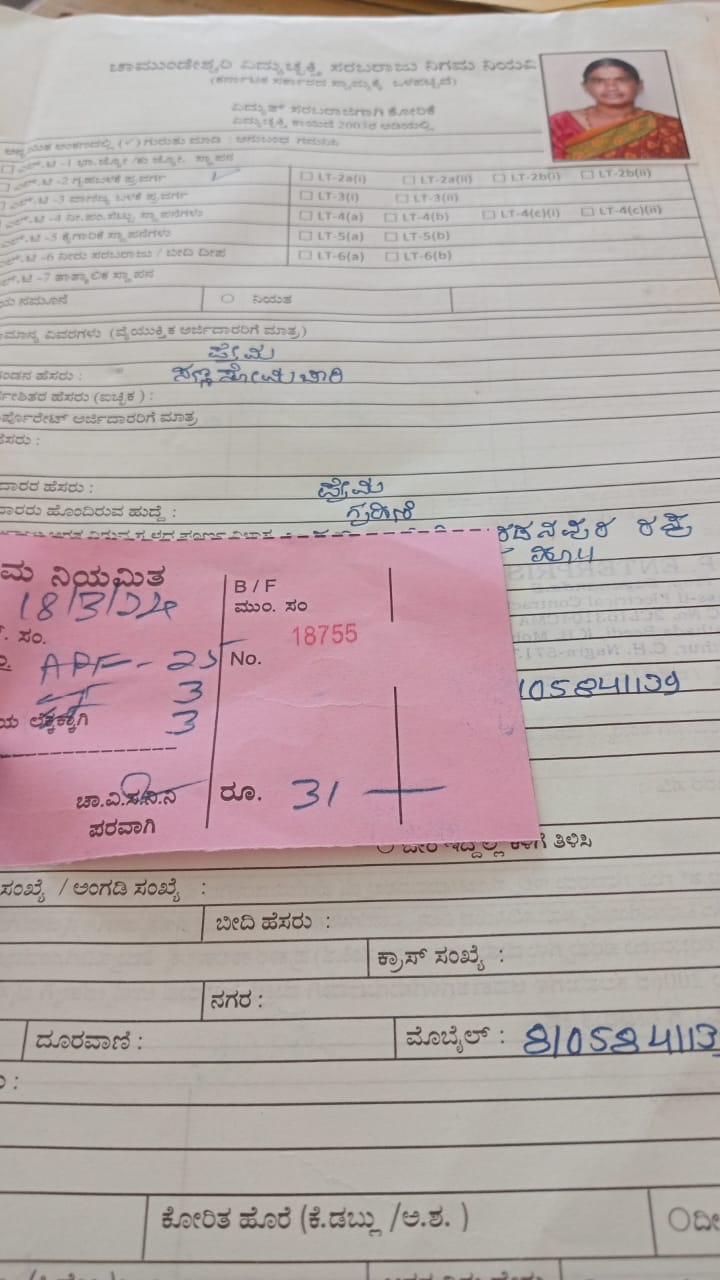 ಚಾಮುಂಡೇಶ್ವರಿ ವಿದ್ಯುಚ್ಛಕ್ತಿ ಸರಬರಾಜು ನಿಗಮ ನಿಯಮಿ
(ಕರ್ನಾಟಕ ಸರ್ಕಾರದ ಸ್ವಾಮ್ಯಕ್ಕೆ ಒಳಪಟ್ಟಿದೆ)
ವಿದ್ಯುತ್ ಸರಬರಾಜಿಗಾಗಿ ಕೋರಿಕೆ
ವಿದ್ಯುಚ್ಛಕ್ತಿ ಕಾಯಿದೆ 2003ರ ಅಡಿಯಲ್ಲಿ
-2 ಗೃಹಬಳಕೆ ✓ LT-2a(i) LT-2a(ii) LT-2b(i) LT-2b(ii)
-3 ವಾಣಿಜ್ಯ ಬಳಕೆ LT-3(i) LT-3(ii)
-4 LT-4(a) LT-4(b) LT-4(c)(i) LT-4(c)(ii)
-5 ಕೈಗಾರಿಕೆ LT-5(a) LT-5(b)
-6 ನೀರು ಸರಬರಾಜು / ಬೀದಿ ದೀಪ LT-6(a) LT-6(b)
-7 ತಾತ್ಕಾಲಿಕ
ನಮೂನೆ ನಿಯತ
ಮಾನ್ಯ ವಿವರಗಳು (ವೈಯುಕ್ತಿಕ ಅರ್ಜಿದಾರರಿಗೆ ಮಾತ್ರ)
ಪ್ರೇಮ
ಂಡನ ಹೆಸರು : ಸಣ್ಣಸೋಮಚಾರಿ
ಹೆಸರು (ಐಚ್ಛಿಕ) :
ರ್ಪೊರೇಟ್ ಅರ್ಜಿದಾರರಿಗೆ ಮಾತ್ರ
ಹೆಸರು :
ದಾರರ ಹೆಸರು : ಪ್ರೇಮ
ದಾರರು ಹೊಂದಿರುವ ಹುದ್ದೆ : ಗೃಹಿಣಿ
105841139
ಮ ನಿಯಮಿತ
18/3/24
. ಸಂ.
APF - 25
3
ಯ ಲೆಕ್ಕಕ್ಕಾಗಿ 3
ಚಾ.ವಿ.ಸ.ನಿ.ನಿ
ಪರವಾಗಿ
B / F
ಮುಂ. ಸಂ
No. 18755
ರೂ. 31
ಕೆಳಗೆ ತಿಳಿಸಿ
ಸಂಖ್ಯೆ / ಅಂಗಡಿ ಸಂಖ್ಯೆ :
ಬೀದಿ ಹೆಸರು :
ಕ್ರಾಸ್ ಸಂಖ್ಯೆ :
ನಗರ :
ದೂರವಾಣಿ : ಮೊಬೈಲ್ : 810584113
ಕೋರಿತ ಹೊರೆ (ಕೆ.ಡಬ್ಲ್ಯು /ಅ.ಶ. )